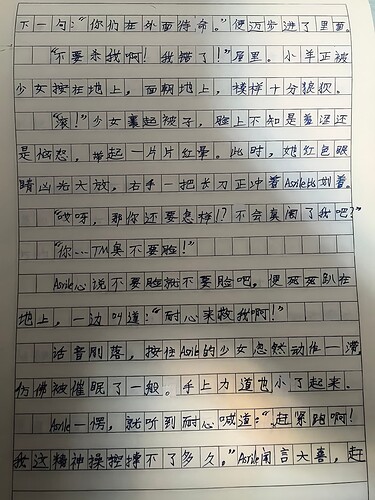 下一句:“你们在外面待命。”便迈步进了里面。
“不要杀我啊!我错了!”屋里。小羊正被
少女按在地上,面朝地上,模样十分狼狈。
“滚!”少女裹起被子,脸上不知是羞涩还
是恼怒,带起一片片红晕。此时,她红色眼
睛凶光大放,右手一把长刀正冲着Asrile比划着。
“哎呀,那你还要怎样!?不会真阉了我吧?”
“你…TM臭不要脸!”
Asrile心说不要脸就不要脸吧,便死死趴在
地上,一边叫道:“耐心来救我啊!”
话音刚落,按住Asrile的少女忽然动作一滞,
仿佛被催眠了一般。手上力道也小了起来。
Asrile一愣,就听到耐心喊道:“赶紧跑啊!
我这精神操控撑不了多久。”Asrile闻言大喜,赶